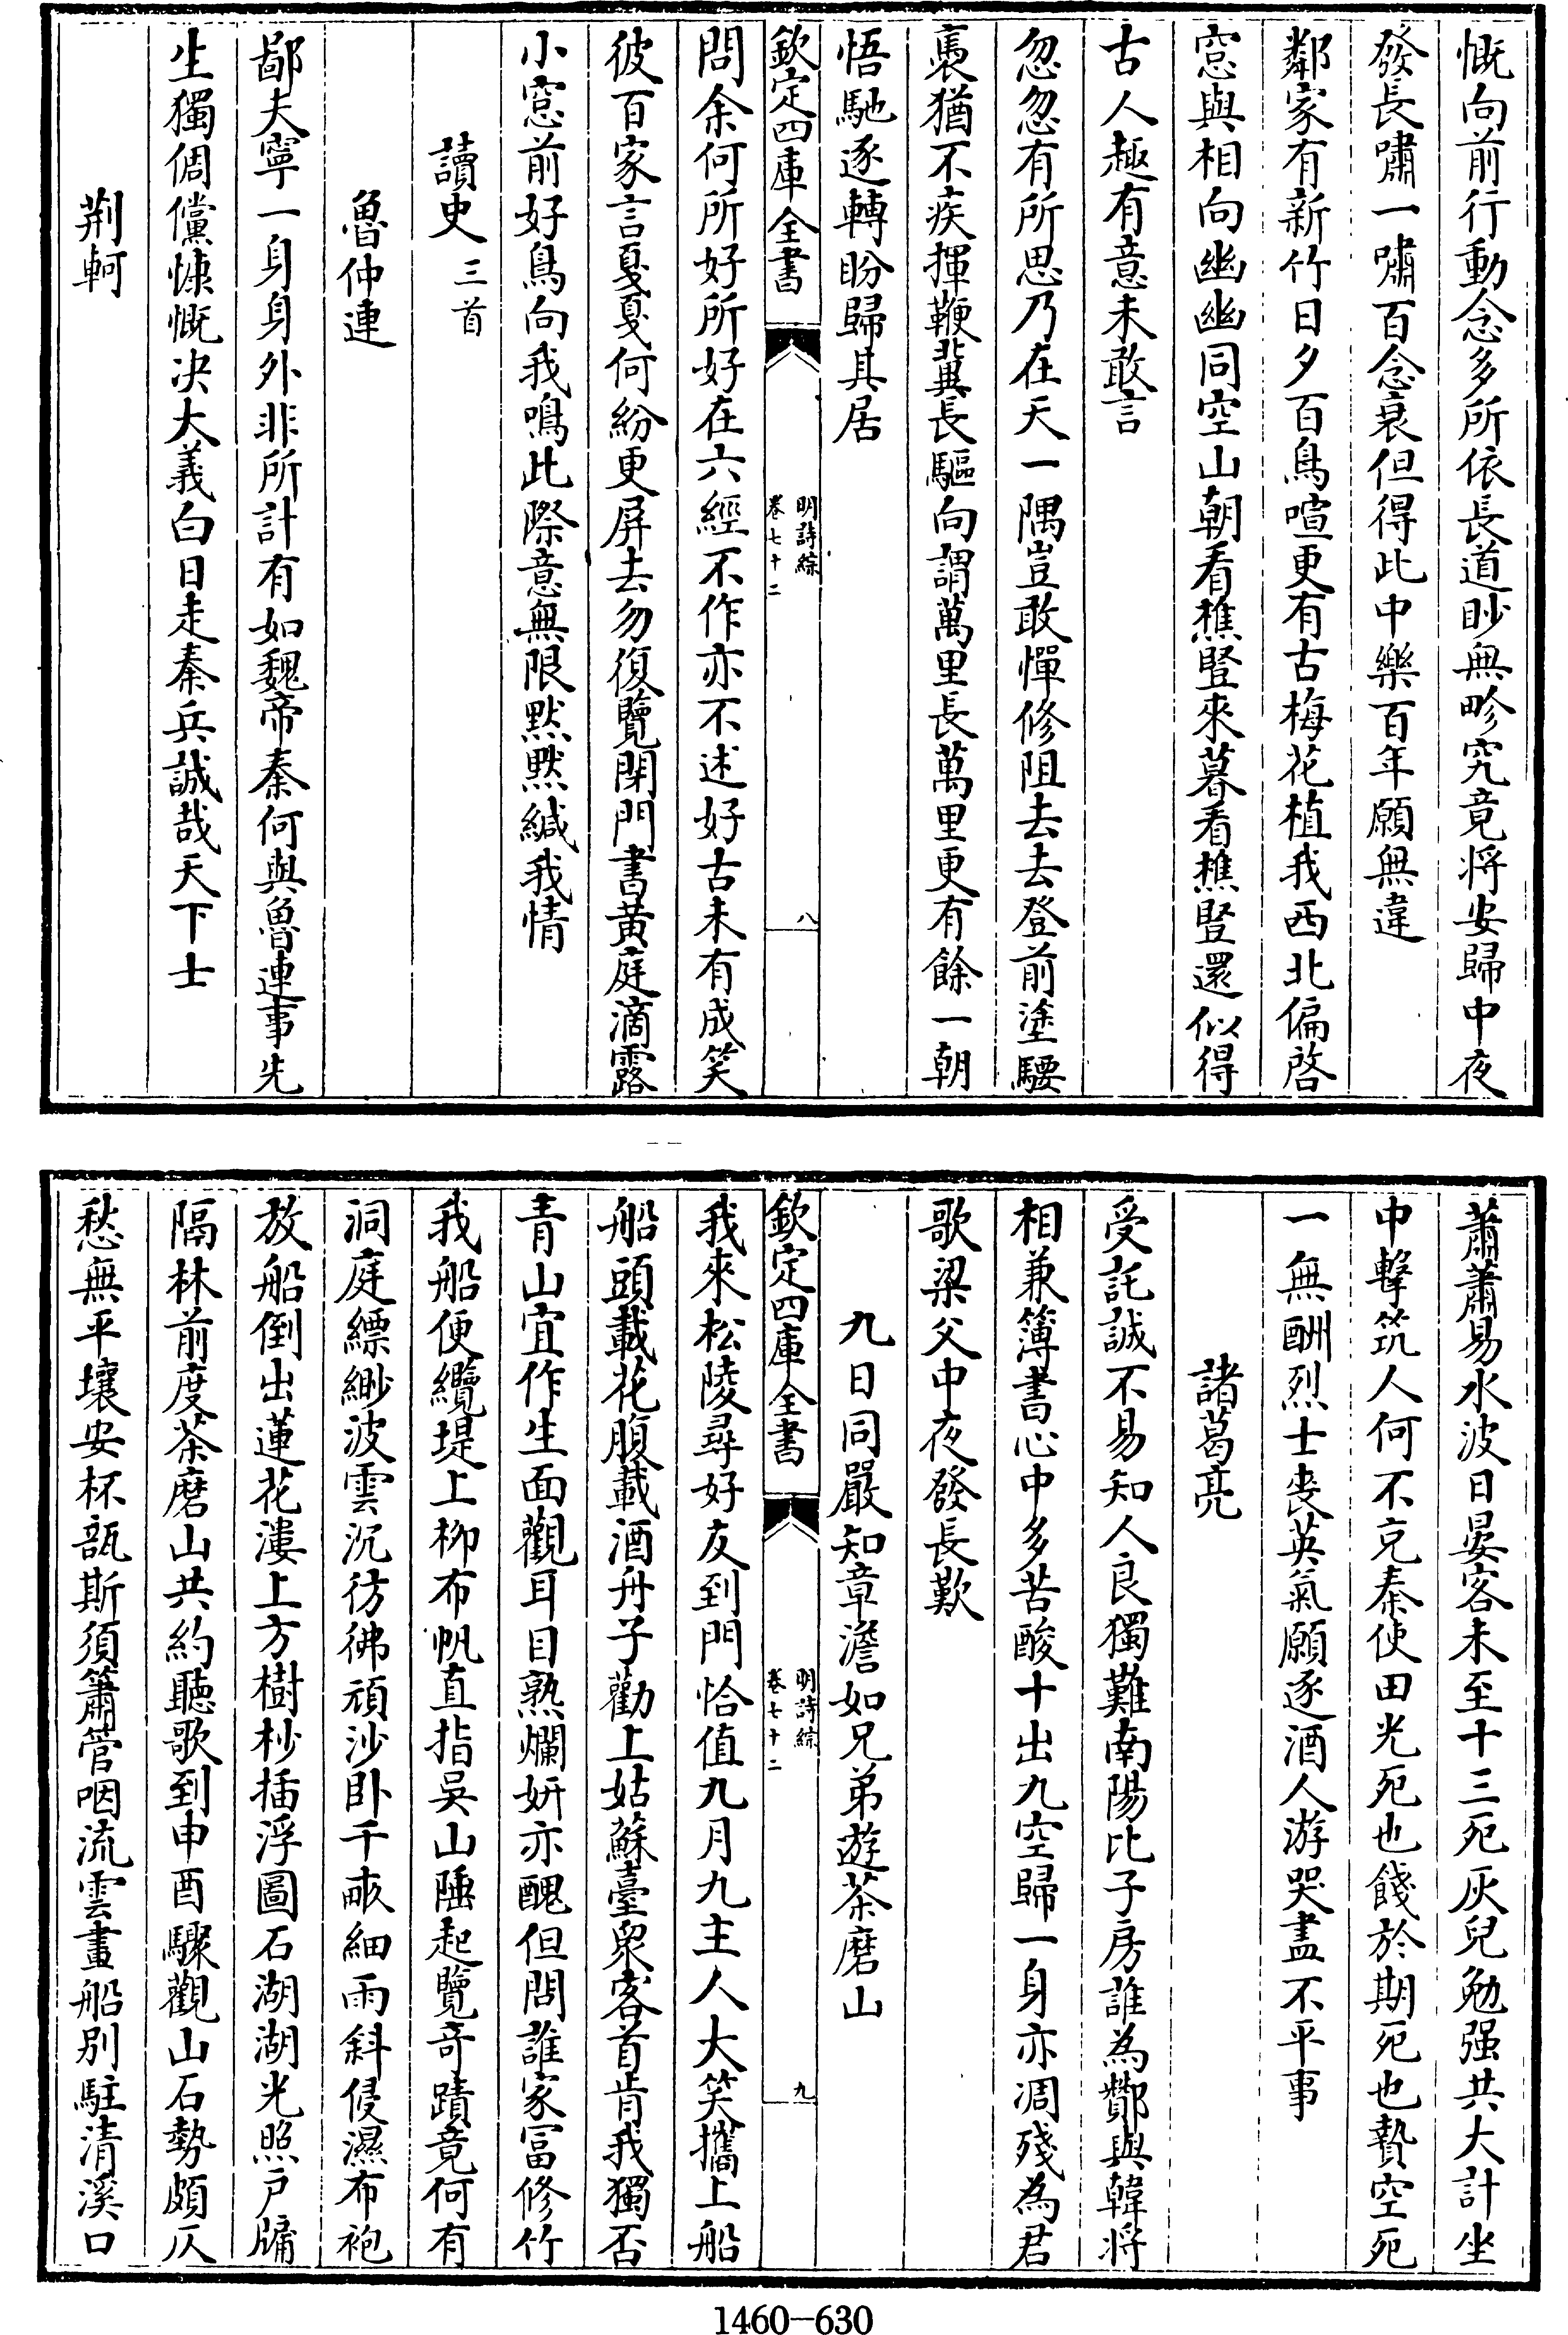 慨向前行動念多所依長道眇無畛究竟將安歸中夜
發長嘯一嘯百念衰但得此中樂百年願無違
鄰家有新竹日夕百鳥喧更有古梅花植我西北偏啓
窓與相向幽幽同空山朝看樵豎來暮看樵豎還似得
古人趣有意未敢言
忽忽有所思乃在天一隅豈敢憚修阻去去登前塗騕
褭猶不疾揮鞭冀長驅向謂萬里長萬里更有餘一朝
悟馳逐轉盼歸其居
欽定四庫全書
明詩綜
卷七十二
八
問余何所好所好在六經不作亦不述好古未有成笑
彼百家言戛戛何紛更屏去勿復覽閉門書黃庭滴露
小窓前好鳥向我鳴此際意無限默默緘我情
讀史三首
魯仲連
鄙夫寧一身身外非所計有如魏帝秦何與魯連事先
生獨倜儻慷慨决大義白日走秦兵誠哉天下士
荆軻
蕭蕭易水波日晏客未至十三死灰兒勉强共大計坐
中擊筑人何不克秦使田光死也餞於期死也贄空死
一無酬烈士喪英氣願逐酒人游哭盡不平事
諸葛亮
受託誠不易知人良獨難南陽比子房誰為酇與韓將
相兼簿書心中多苦酸十出九空歸一身亦凋殘為君
歌梁父中夜發長歎
九日同嚴知章澹如兄弟遊茶磨山
欽定四庫全書
明詩綜
卷七十二
九
我來松陵尋好友到門恰值九月九主人大笑攜上船
船頭載花腹載酒舟子勸上姑蘇臺衆客首肯我獨否
青山宜作生面觀耳目熟爛妍亦醜但問誰家富修竹
我船便纜堤上柳布帆直指吳山陲起覽奇蹟竟何有
洞庭縹緲波雲沉彷彿頑沙卧千畝細雨斜侵濕布袍
放船倒出蓮花漊上方樹杪插浮圖石湖湖光照戶牖
隔林前度茶磨山共約聽歌到申酉驟觀山石勢頗仄
愁無平壤安杯瓿斯須簫管咽流雲畫船別駐清溪口
1460-630